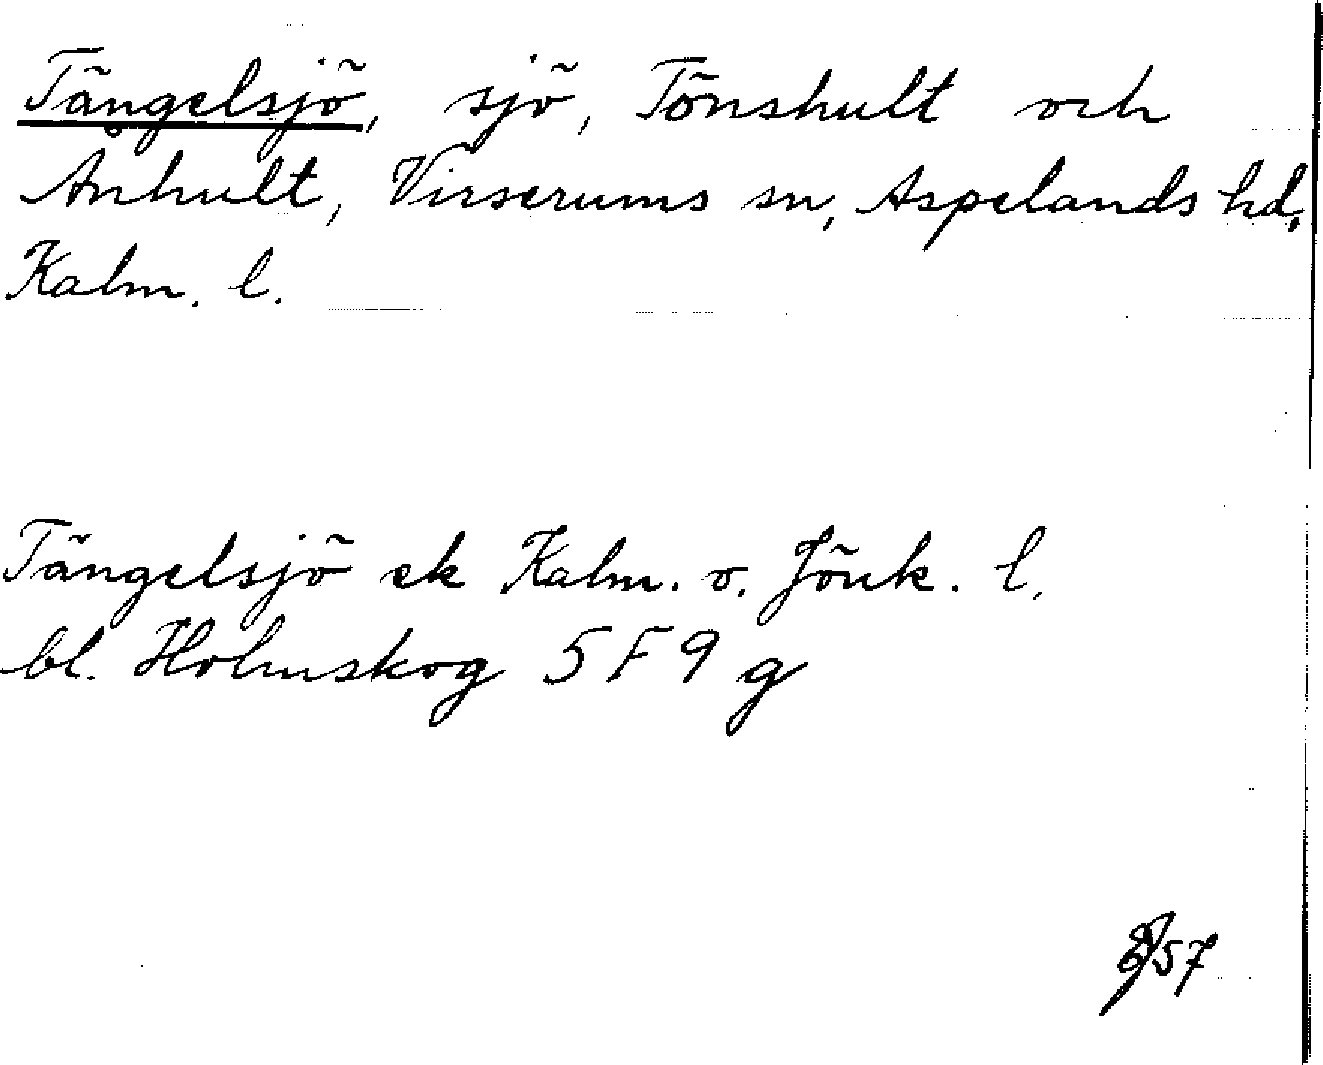 Tängelsjö, sjö, Tönshult och
Ånhult, Virserums sn, Aspelands hd,
Kalm. l.
Tängelsjö ek Kalm. o. Jönk. l.
bl. Holmskog 5 F 9 g